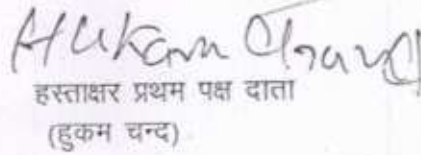 Hukam Chand
हस्ताक्षर प्रथम पक्ष दाता
(हुकम चन्द)